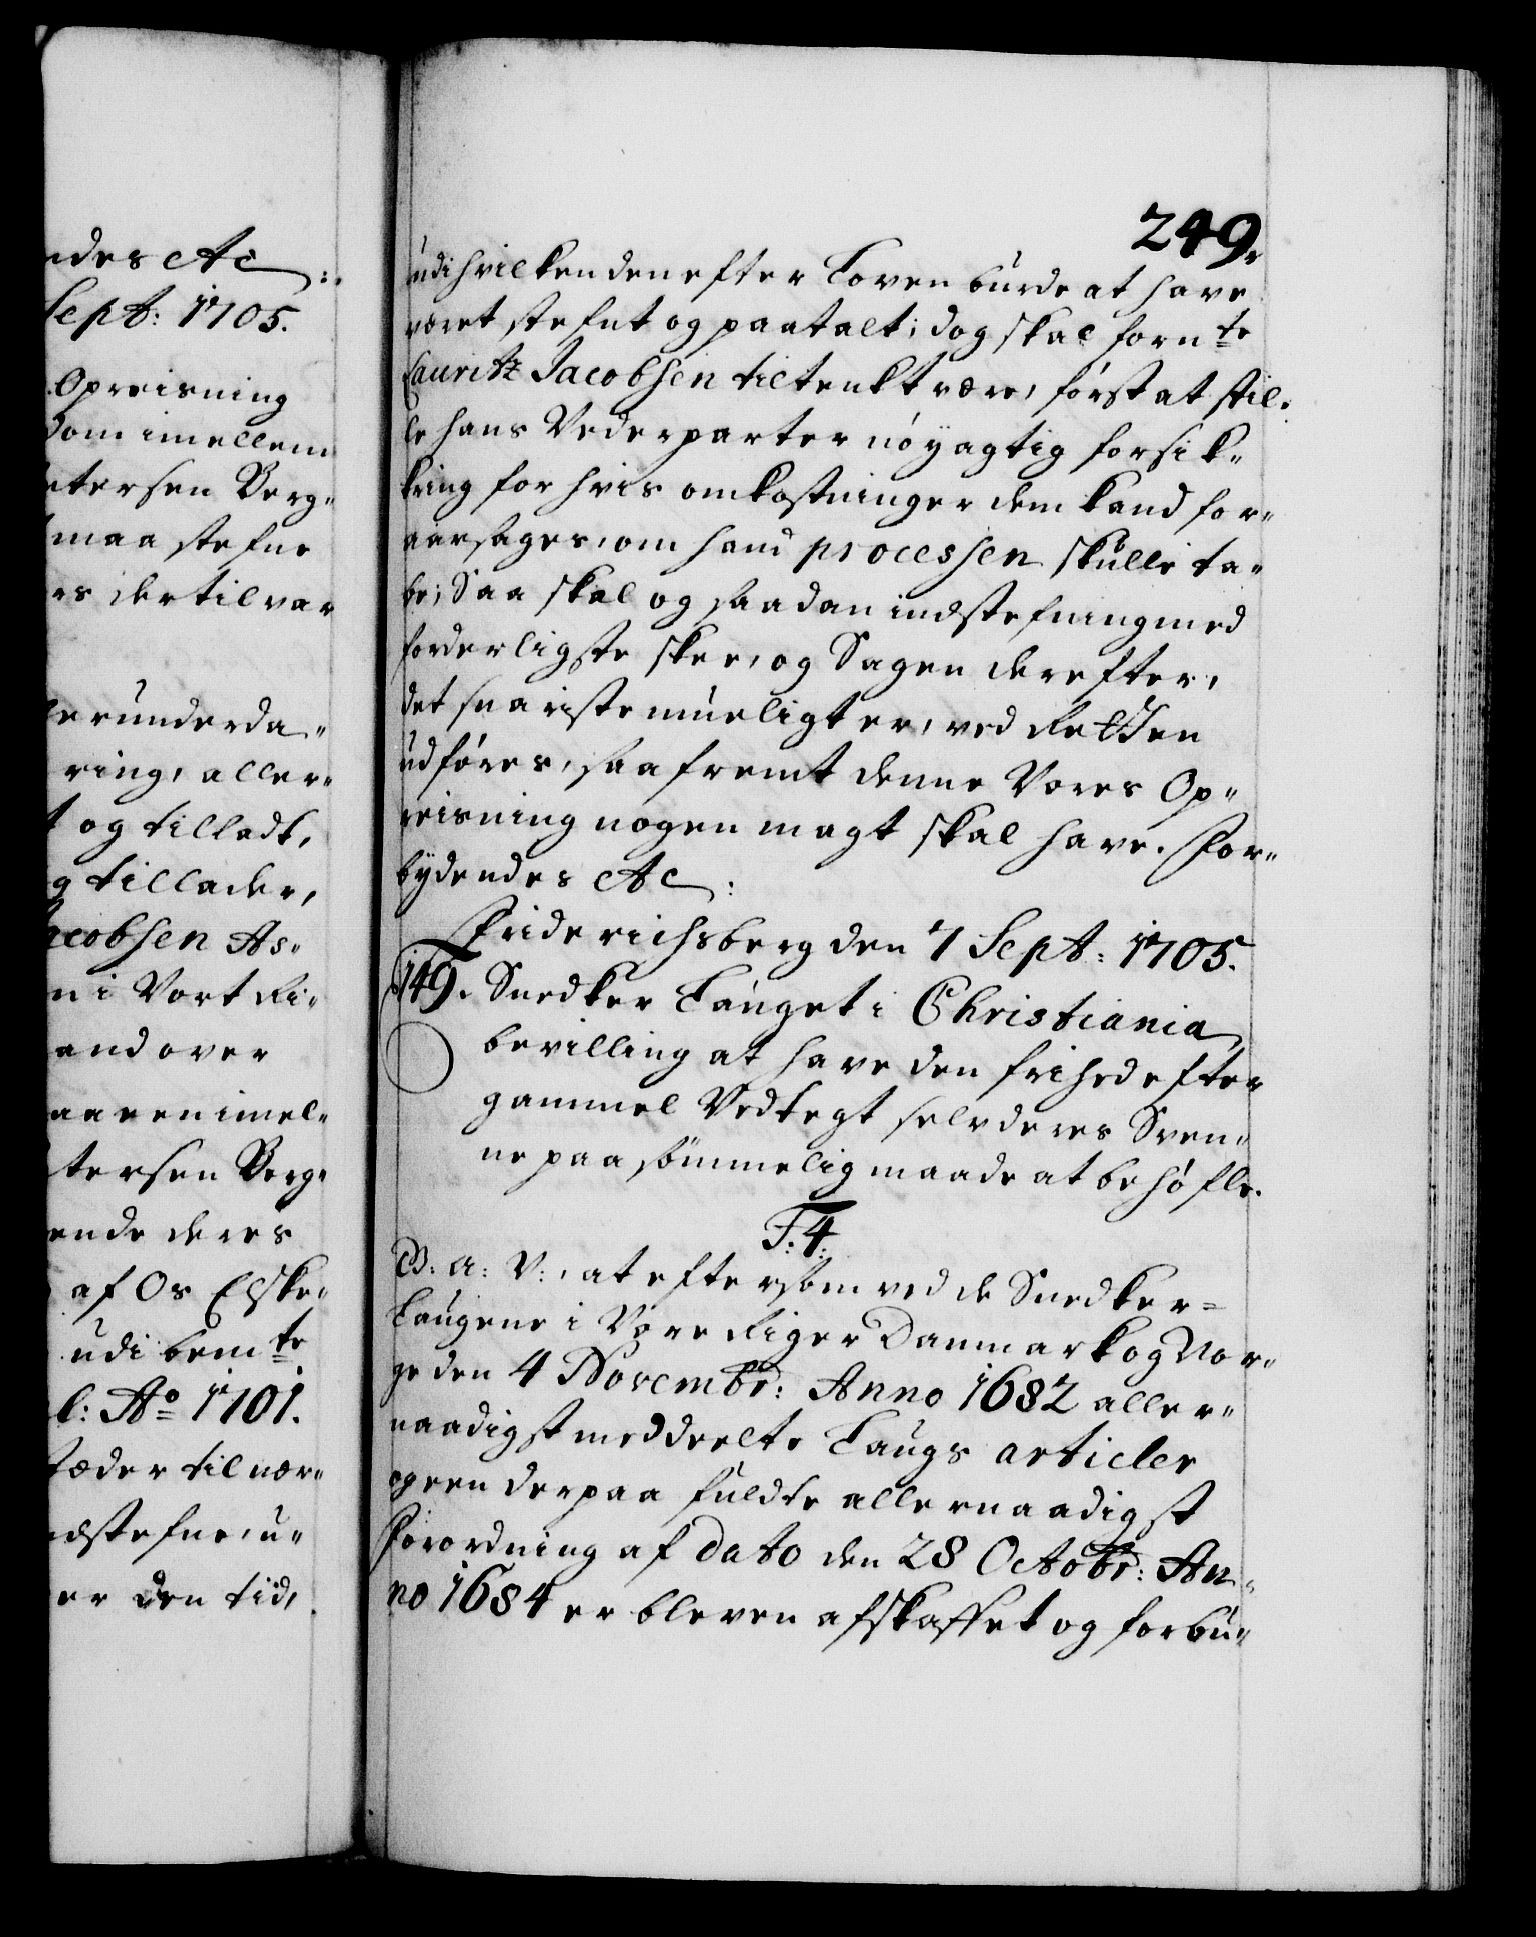 ndes etc:
Sept: 1705.
Opreisning
Dom imellem
etersen Berg-
maa stefne
rs dertil var
erunderda-
ring, aller-
t og tilladt,
g tillader,
acobsen As-
n i Vort Ri-
and over
aaeen imel-
tersen Berg-
ende deres
af Os Elske-
udi bemte
l: Ao 1701.
tæder til nær-
dstefne, u-
er den tid,
249.
udi hvilken den efter Loven burde at have
været stefnt og paatalt; dog skal fornte
Lauritz Jacobsen tiltenkt være, först at stil-
le hans Vederparter nöyagtig forsik-
kring for hvis omkostninger dem kand for-
aarsages, om hand processen skulle ta-
be; Saa skal og saadan indstefning med
forderligste skee, og Sagen derefter,
det snariste mueligt er, ved Retten
udföres, saafremt denne Vores Op-
reisning nogen magt skal have. For-
bydendes etc:
Friderichsberg den 7 Sept: 1705.
149. Snedker Lauget i Christiania
bevilling at have den frihed efter
gammel Vedtegt selv deres Sven-
ne paa sömmelig maade at behöfle.
F: 4:
G: A: V:, at eftersom ved de Snedker-
Laugene i Vore Riger Danmark og Nor-
ge den 4 Novembr: Anno 1682 aller-
naadigst meddeelte Laugs articler
og een derpaa fuldte allernaadigst
Forordning af dato den 28 Octobr: An-
no 1684 er bleven afskaffet og forbu-